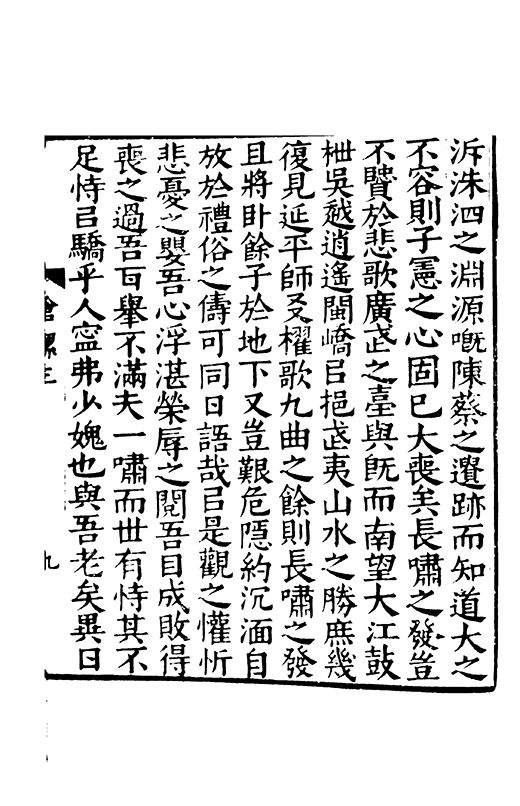 泝洙泗之淵源慨陳蔡之遺跡而知道大之
不容則子憲之心固已大喪矣長嘯之發豈
不贒於悲歌廣武之臺與旣而南望大江鼓
枻吳越逍遙閩嶠㠯挹武夷山水之勝庶幾
復見延平師友櫂歌九曲之餘則長嘯之發
且將卧餘子於地下又豈艱危隱約沉湎自
放於禮俗之儔可同日語哉㠯是觀之懽忻
悲憂之嬰吾心浮湛榮辱之閱吾目成敗得
喪之過吾百舉不滿夫一嘯而世有恃其不
足恃㠯驕乎人寍弗少媿也與吾老矣異日
滄螺
九